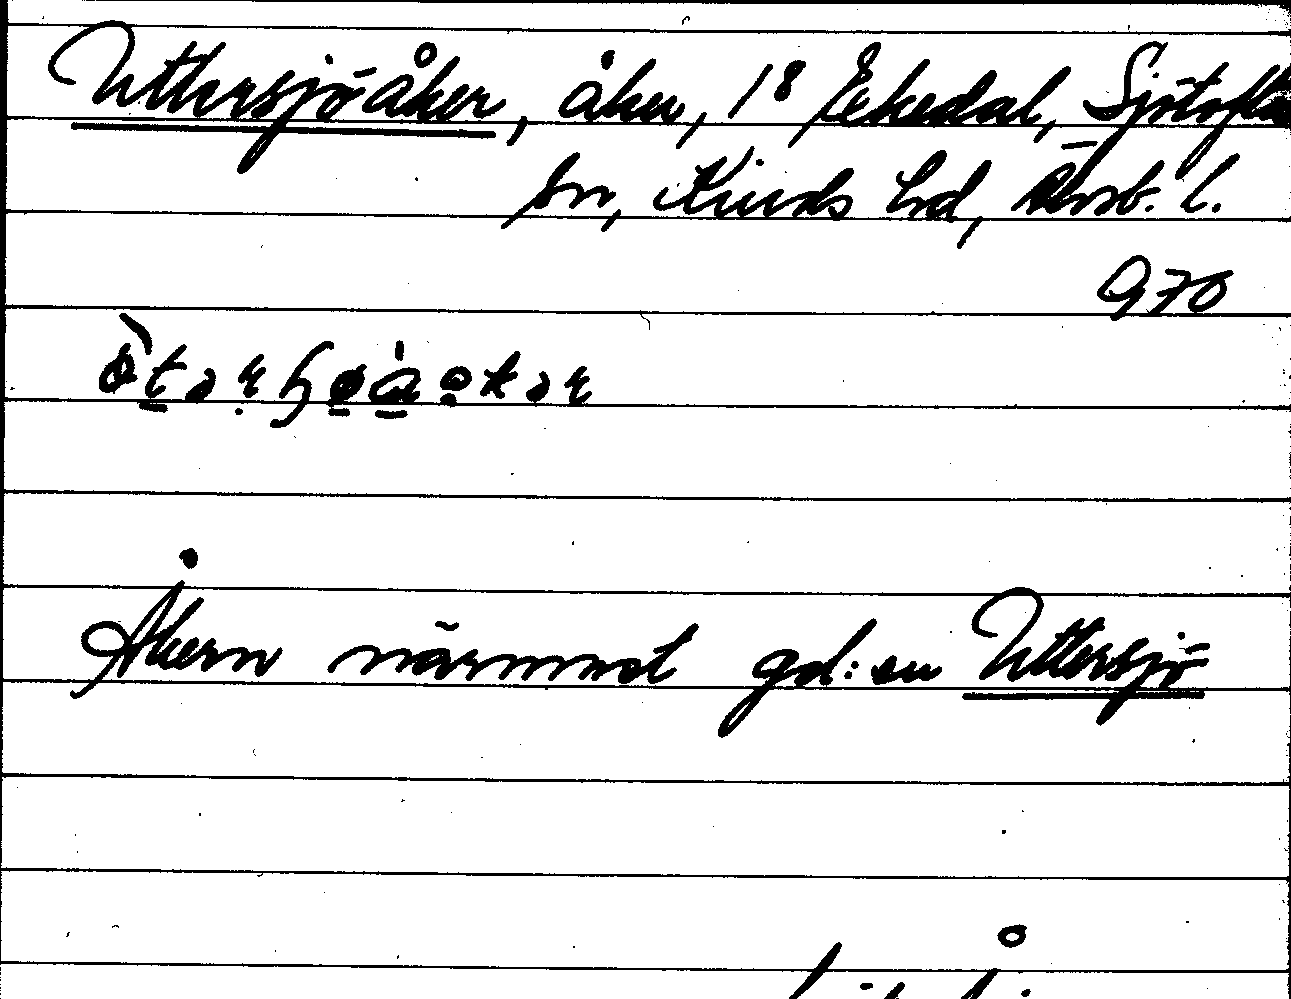 Uttersjöåker, åker, 1⁸ Ekedal, Sjötofta
sn, Kinds hd, Älvsb. l.
970
Åkern närmast gd:en Uttersjö